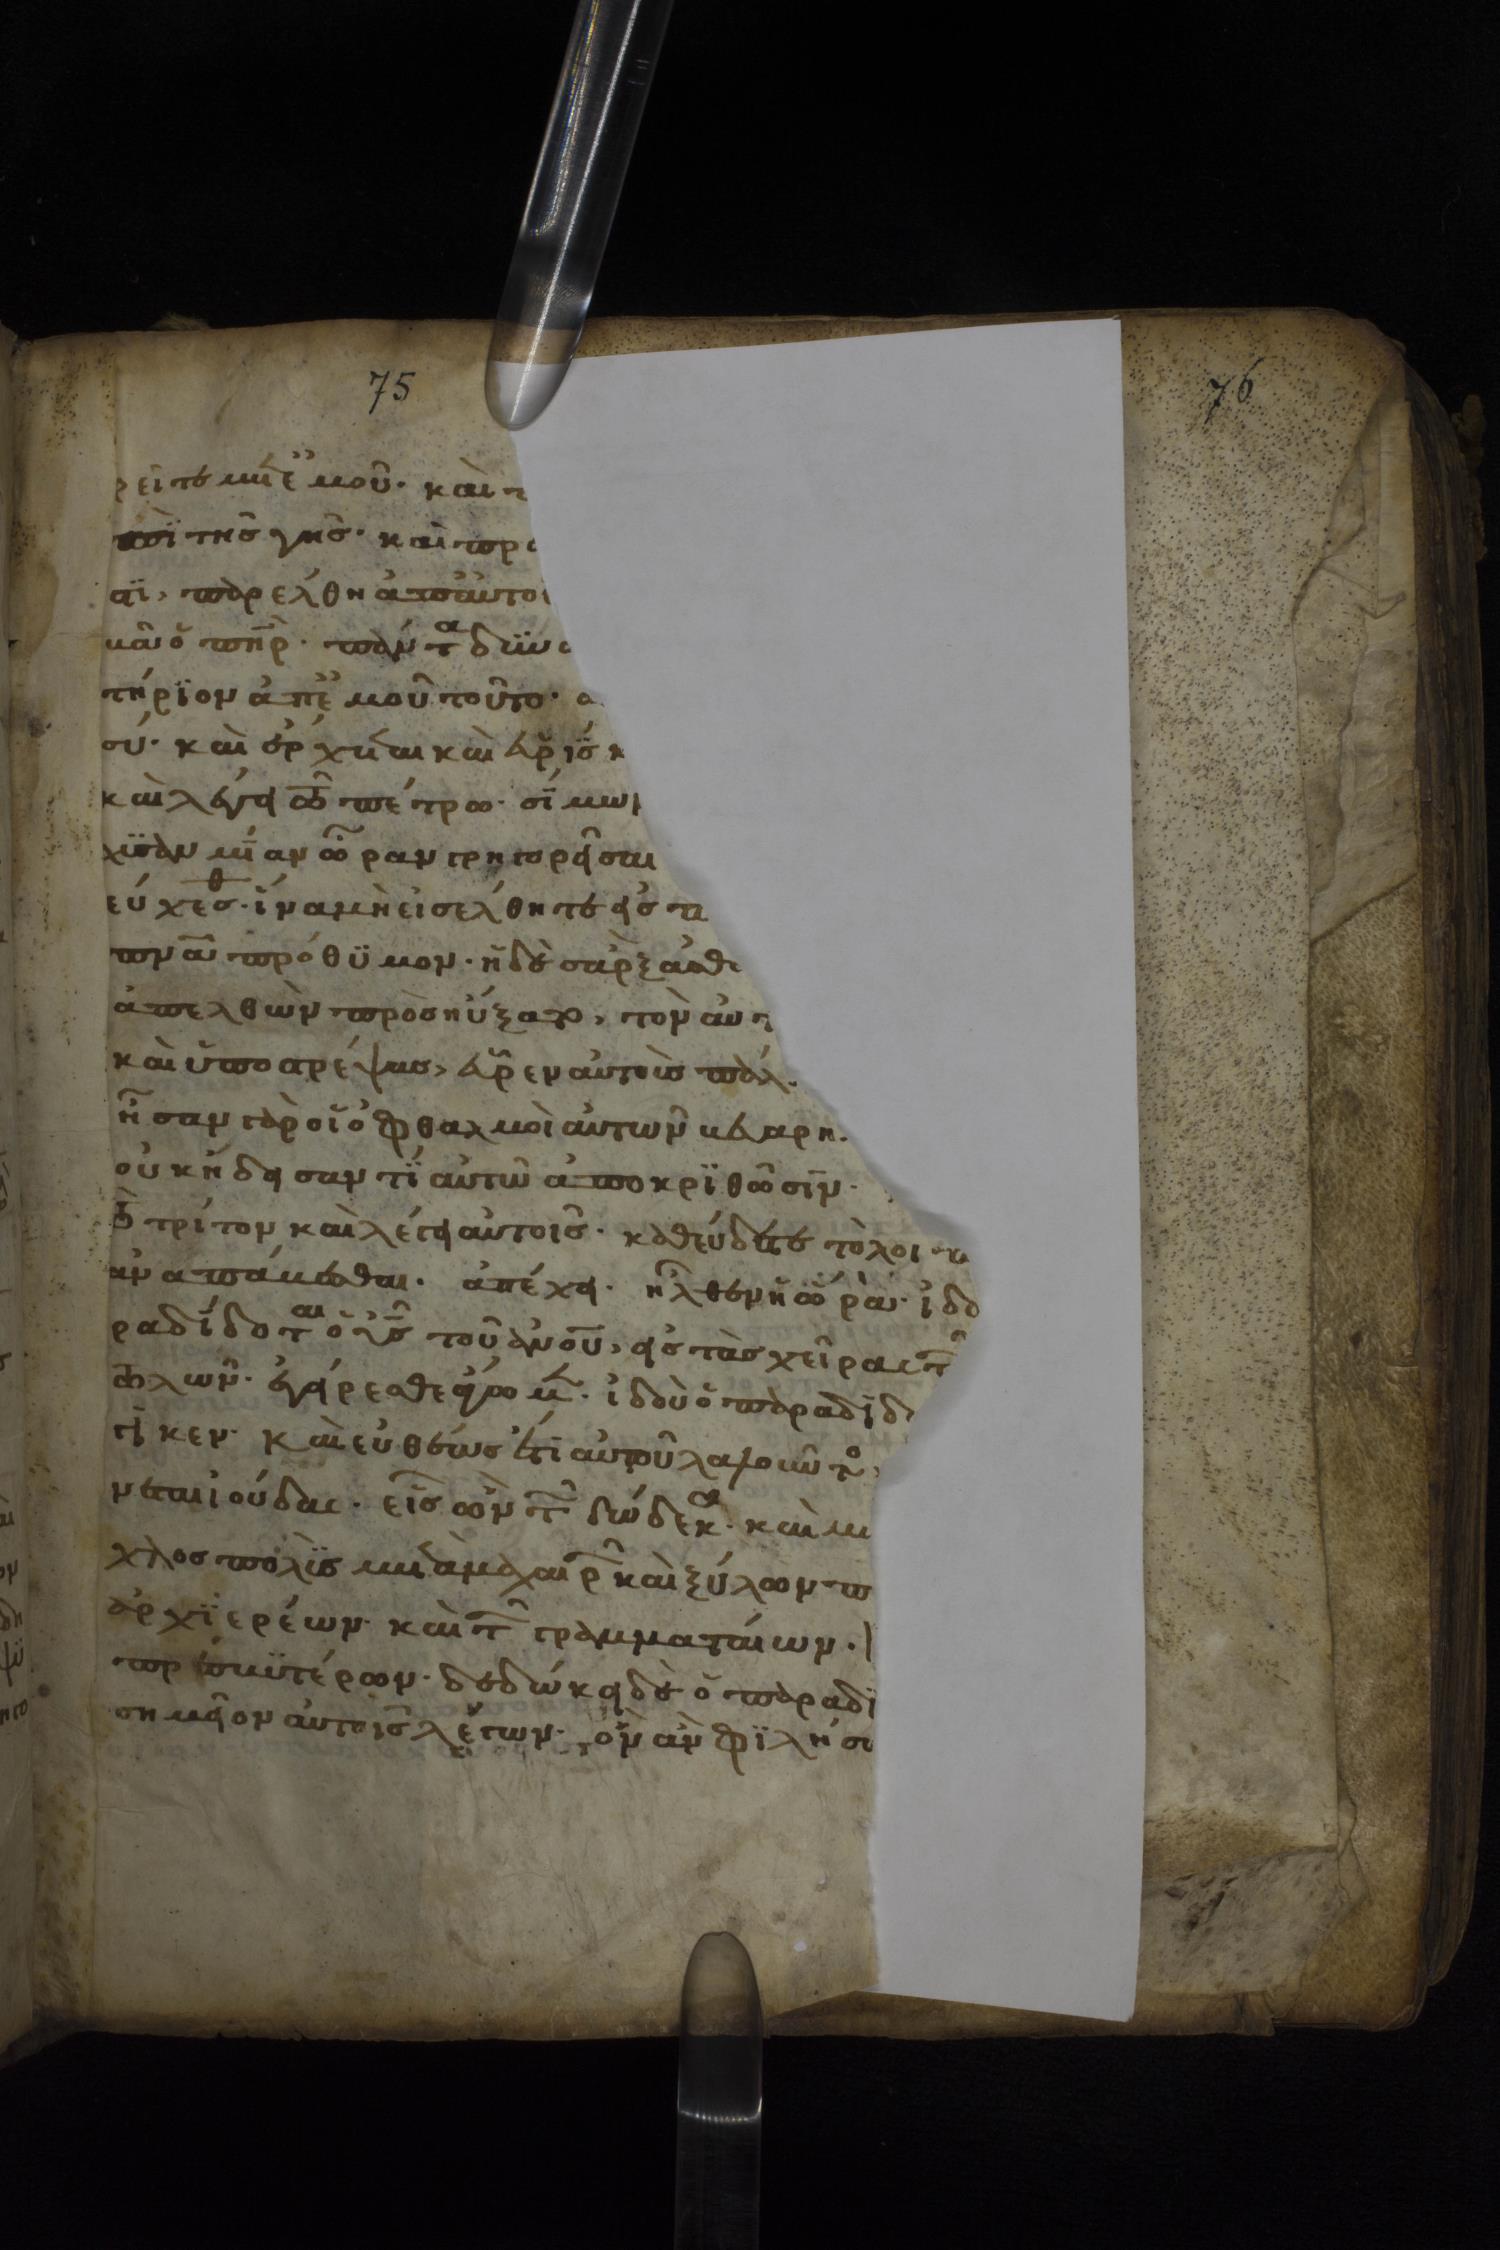 75
76
ρεῖτε μετ ἐμοῦ· καὶ π
ἐπὶ τῆς γῆς· καὶ προ
αϊ, παρέλθη ἀπ αὐτοῦ
μου ὁ πηρ· πάντα δϋνα
τήρϊον ἀπ ἐμοῦ τοῦτο· ἀ
σύ· καὶ ἔρχεται καὶ εὑρίσκ
καὶ λέγει τῶ πέτρω· σίμων
χϋσαν μίαν ὥραν γρηγορῆσαι
εύχεσθ· ἵνα μὴ εἰσέλθητε εἰς π
πνα πρόθϋμον· ἡ δὲ σὰρξ ἀσθε
ἀπελθὼν προσηύξατο, τὸν αὐτ
καὶ ὑποστρέψας, εὗρεν αὐτοὺς πάλ
ἦσαν γὰρ οἱ ὀφθαλμοὶ αὐτῶν βεβαρη
οὐκ ἤδεισαν τί αὐτῶ ἀποκρϊθῶσϊν·
τὸ τρίτον καὶ λέγει αὐτοῖς· καθεύδετε τὸ λοιπ
αναπάυεσθαι· ἀπέχει· ἦλθεν ἡ ὥρα· ἰδο
ραδίδοται ὁ υς τοῦ ἀνου, εἰς τὰς χεῖρας τῶν
τωλῶν· ἐγείρεσθε ἄγωμεν· ἰδοὺ ὁ παραδϊδ
γικεν· Καὶ εὐθέως ἔτι αὐτοῦ λαλοῦντος
νεται ἰούδας· εἷς ὢν τῶν δώδεκα· καὶ με
χλος πολϋς μετὰ μαχαιρῶν καὶ ξύλων π
ἀρχϊερέων· καὶ τῶν γραμματαίων·
πρεσβϋτέρων· δεδώκει δὲ ὁ παραδϊ
σημεῖον αὐτοῖς λέγων· ὃν ἂν φϊλήσω